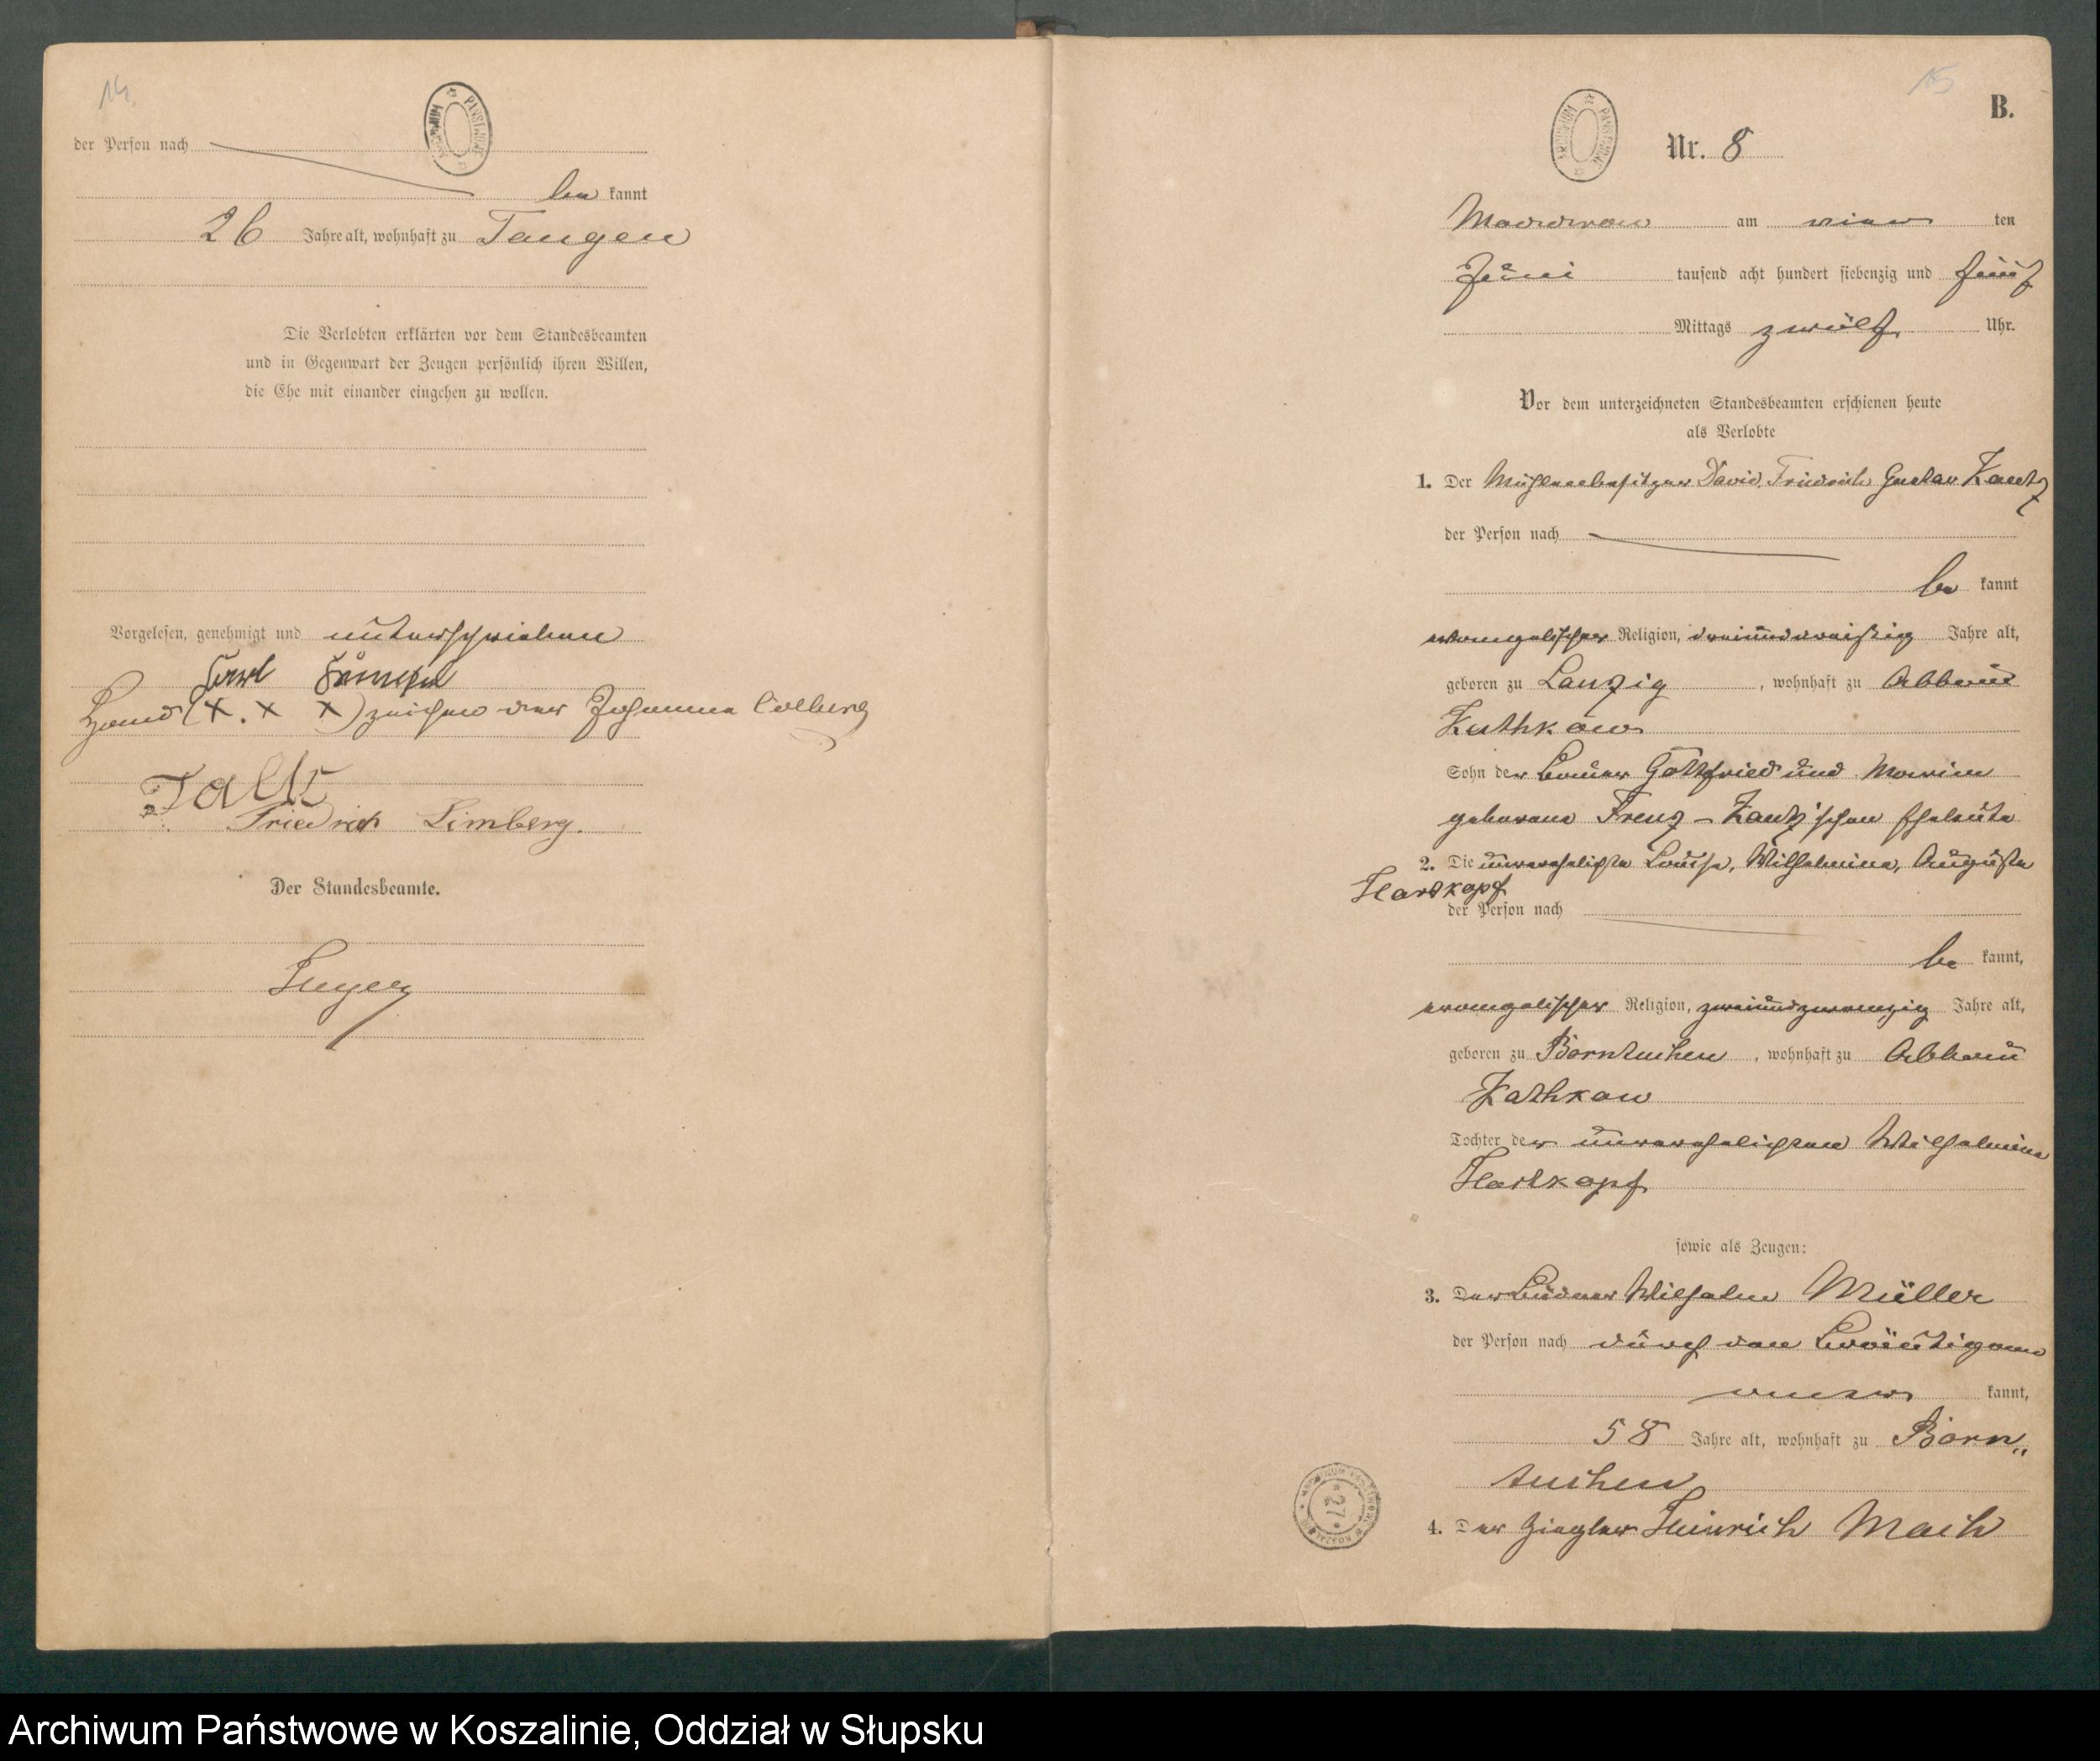 14.
ARCHIWUM PAŃSTWOWE
der Person nach
be kannt
26 Jahre alt, wohnhaft zu Tangen
Die Verlobten erklärten vor dem Standesbeamten
und in Gegenwart der Zeugen persönlich ihren Willen,
die Ehe mit einander eingehen zu wollen.
Vorgelesen, genehmigt und unterschrieben
Carl
Hand (X. X X) zeichen der Johanna Colberg
Friedrich Limberg.
Der Standesbeamte.
15
B.
ARCHIWUM PAŃSTWOWE
Nr. 8
Moddrow am vier ten
Juni tausend acht hundert siebenzig und fünf
Mittags zwölf Uhr.
Vor dem unterzeichneten Standesbeamten erschienen heute
als Verlobte
1. Der Mühlenbesitzer David Friedrich Gustav Kautz
der Person nach
be kannt
evangelischer Religion, dreiunddreißig Jahre alt,
geboren zu Lanzig, wohnhaft zu Abbau
Kathkow
Sohn der Bauer Gottfried und Marie
geborene Frenz - Kautz'schen Eheleute
2. Die unverehelichte Louise, Wilhelmine, Auguste
Hartkopf
der Person nach
be kannt,
evangelischer Religion, zweiundzwanzig Jahre alt,
geboren zu Borntuchen, wohnhaft zu Abbau
Kathkow
Tochter der unverehelichten Wilhelmine
Hartkopf
sowie als Zeugen:
3. Der Büdner Wilhelm Müller
der Person nach durch den Bräutigam
aner kannt,
58 Jahre alt, wohnhaft zu Born„
tuchen
4. Der Ziegler Heinrich Mach
27
Archiwum Państwowe w Koszalinie, Oddział w Słupsku